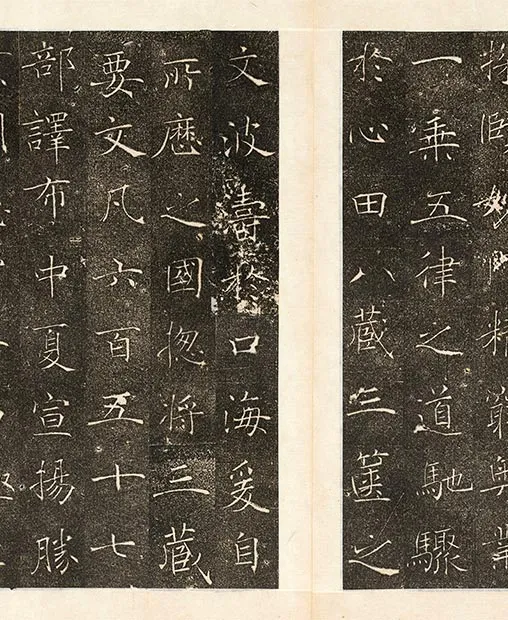 妙門精窮奧業
一乘五律之道馳驟
於心田八藏三篋之
文波濤於口海爰自
所歷之國揔將三藏
要文凡六百五十七
部譯布中夏宣揚勝